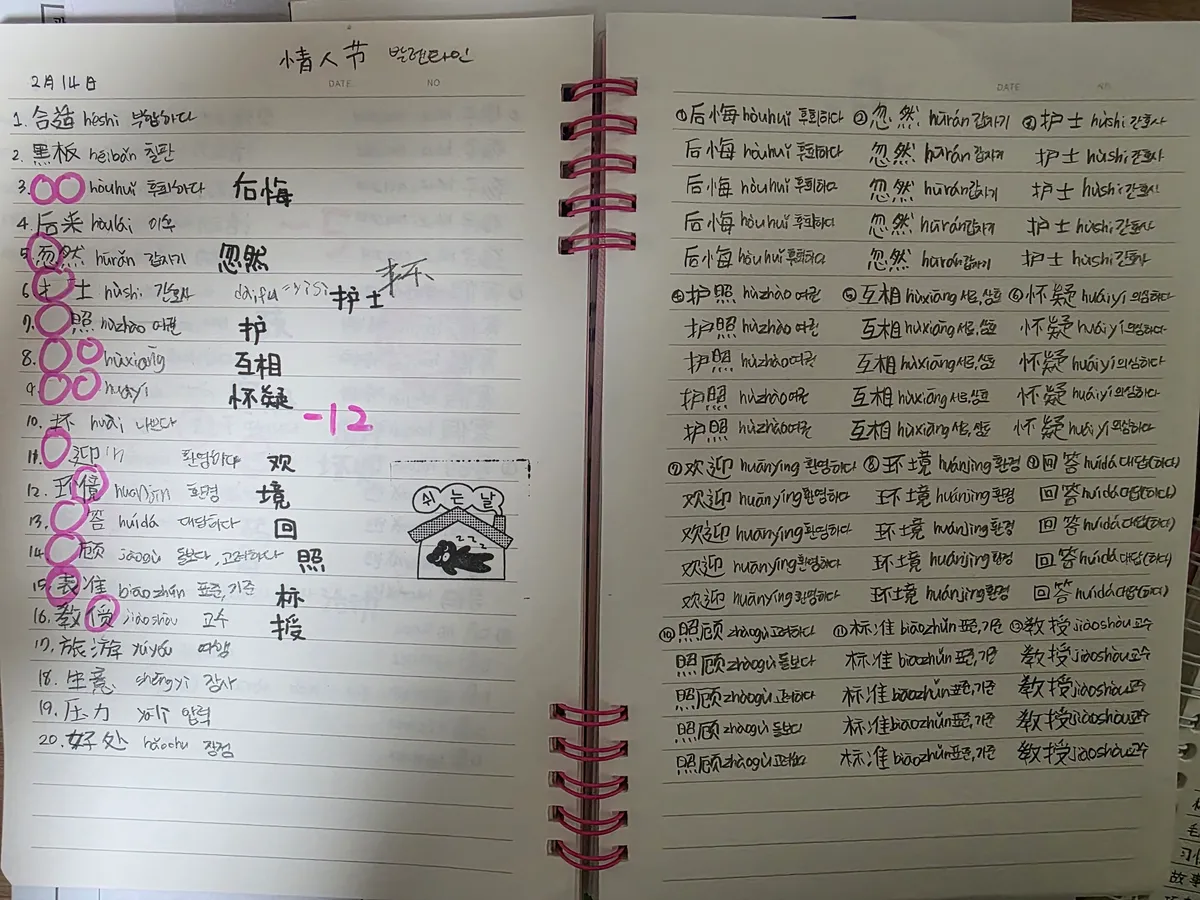 情人节 발렌타인
2月14日 DATE NO
1. 合适 héshì 부합하다
2. 黑板 hēibǎn 칠판
3. hòuhuǐ 후회하다 后悔
4. 后来 hòulái 이후
5. 忽然 hūrán 갑자기 忽然
6. 士 hùshi 간호사 护士
7. 照 hùzhào 여권 护
8. hùxiāng 互相
9. huáiyí 怀疑
-12
10. 坏 huài 나쁘다
11. 迎 환영하다 欢
12. 环境 환경 境
13. 答 huídá 대답하다 回
쉬는날
zzz
14. 顾 돌보다, 고려하다 照
15. 表准 biāozhǔn 표준, 기준 标
16. 教 jiàoshòu 교수 授
17. 旅游 여행
18. 生意 shēngyi 장사
19. 压力 yālì 압력
20. 好处 hǎochu 장점
DATE NO
①后悔 hòuhuǐ 후회하다 ②忽然 hūrán 갑자기 ③护士 hùshi 간호사
后悔 hòuhuǐ 후회하다 忽然 hūrán 갑자기 护士 hùshi 간호사
后悔 hòuhuǐ 후회하다 忽然 hūrán 갑자기 护士 hùshi 간호사
后悔 hòuhuǐ 후회하다 忽然 hūrán 갑자기 护士 hùshi 간호사
后悔 hòuhuǐ 후회하다 忽然 hūrán 갑자기 护士 hùshi 간호사
④护照 hùzhào 여권 ⑤互相 hùxiāng 서로, 상호 ⑥怀疑 huáiyí 의심하다
护照 hùzhào 여권 互相 hùxiāng 서로, 상호 怀疑 huáiyí 의심하다
护照 hùzhào 여권 互相 hùxiāng 서로, 상호 怀疑 huáiyí 의심하다
护照 hùzhào 여권 互相 hùxiāng 서로, 상호 怀疑 huáiyí 의심하다
护照 hùzhào 여권 互相 hùxiāng 서로, 상호 怀疑 huáiyí 의심하다
⑦欢迎 huānyíng 환영하다 ⑧环境 huánjìng 환경 ⑨回答 huídá 대답(하다)
欢迎 huānyíng 환영하다 环境 huánjìng 환경 回答 huídá 대답(하다)
欢迎 huānyíng 환영하다 环境 huánjìng 환경 回答 huídá 대답(하다)
欢迎 huānyíng 환영하다 环境 huánjìng 환경 回答 huídá 대답(하다)
欢迎 huānyíng 환영하다 环境 huánjìng 환경 回答 huídá 대답(하다)
⑩照顾 zhàogù 고려하다 ⑪标准 biāozhǔn 표준, 기준 ⑫教授 jiàoshòu 교수
照顾 zhàogù 돌보다 标准 biāozhǔn 표준, 기준 教授 jiàoshòu 교수
照顾 zhàogù 고려하다 标准 biāozhǔn 표준, 기준 教授 jiàoshòu 교수
照顾 zhàogù 돌보다 标准 biāozhǔn 표준, 기준 教授 jiàoshòu 교수
照顾 zhàogù 고려하다 标准 biāozhǔn 표준, 기준 教授 jiàoshòu 교수
毛
习
故事